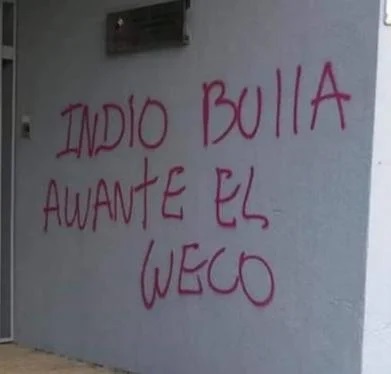 INDIO BUllA
AWANTE EL
WECO